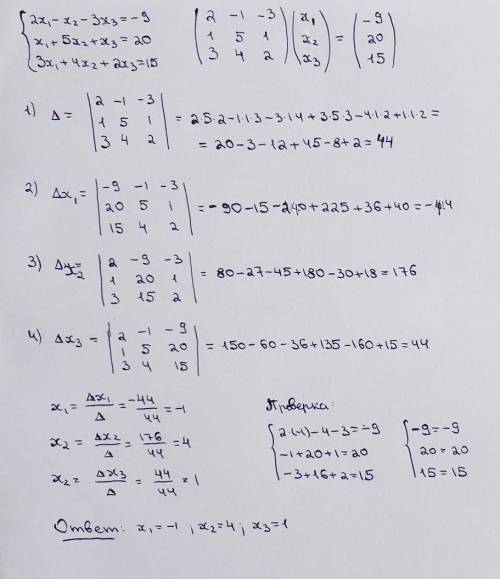 { 2x₁-x₂-3x₃=-9
x₁+5x₂+x₃=20
3x₁+4x₂+2x₃=15
( 2 -1 -3
1 5 1
3 4 2 ) ( x₁
x₂
x₃ ) = ( -9
20
15 )
1) Δ = | 2 -1 -3
1 5 1
3 4 2 | = 2·5·2-1·1·3-3·1·4+3·5·3-4·1·2+1·1·2=
= 20-3-12+45-8+2=44
2) Δx₁= | -9 -1 -3
20 5 1
15 4 2 | = -90-15-240+225+36+40=-44
3) Δx₂= | 2 -9 -3
1 20 1
3 15 2 | = 80-27-45+180-30+18=176
4) Δx₃ = | 2 -1 -9
1 5 20
3 4 15 | = 150-60-36+135-160+15=44
x₁= Δx₁/Δ = -44/44 = -1
x₂= Δx₂/Δ = 176/44 = 4
x₂= Δx₃/Δ = 44/44 = 1
Проверка:
{ 2·(-1)-4-3=-9
-1+20+1=20
-3+16+2=15
{ -9=-9
20=20
15=15
Ответ: x₁=-1 ; x₂=4; x₃=1